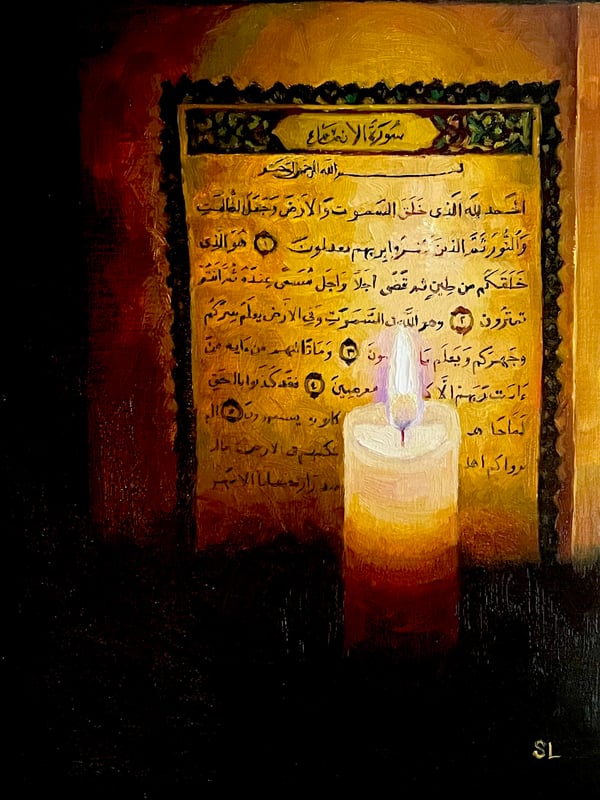 سُورَةُ الانعام
الله الرحمن الرحيم
الحمد لله الذى خَلَقَ السَّمٰوٰت وَالارْضَ وَجَعَلَ الظُّلُمٰتِ
وَالنُّورَ ثُمَّ الذينَ كفروا بربهم يعدلون ١ هُوَ الَّذى
خَلَقَكُم من طِينٍ ثُم قَضٰى أجلاً وَاَجَلٌ مُسَمًّى عِندَهُ ثُم أنتُم
تَمترُونَ ٢ وهو اللّٰه فى السَّمٰوٰتِ وَفِى الارْضِ يعلَم سِرَّكُم
وَجهرَكم وَيَعلَم ما ون ٣ وَمَا تَاتيهم من ءاية من
ءايٰت رَبهِمْ الَّا ك معرضين ٤ فقد كذبوا بالحق
لَمَّا جَا هم كانوا به يستهزءون ٥ الم
يروا كم اهل مكنهم فى الارض مالم